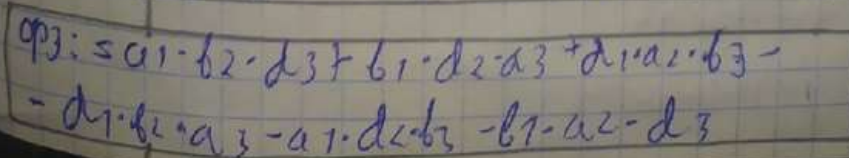 орз: = a1·b2·d3 + b1·d2·a3 + d1·a2·b3 -
- d1·b2·a3 - a1·d2·b3 - b1·a2·d3